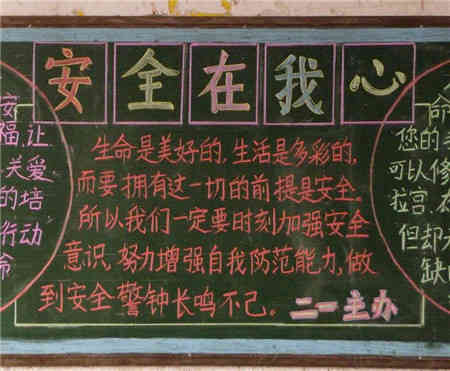 安全在我心
生命是美好的,生活是多彩的,
而要拥有这一切的前提是安全。
所以我们一定要时刻加强安全
意识,努力增强自我防范能力,做
到安全警钟长鸣不己。
二一主办
安
福,让
关爱
的培
行动
命
命
您的
可以修
拉宫,
但却
缺